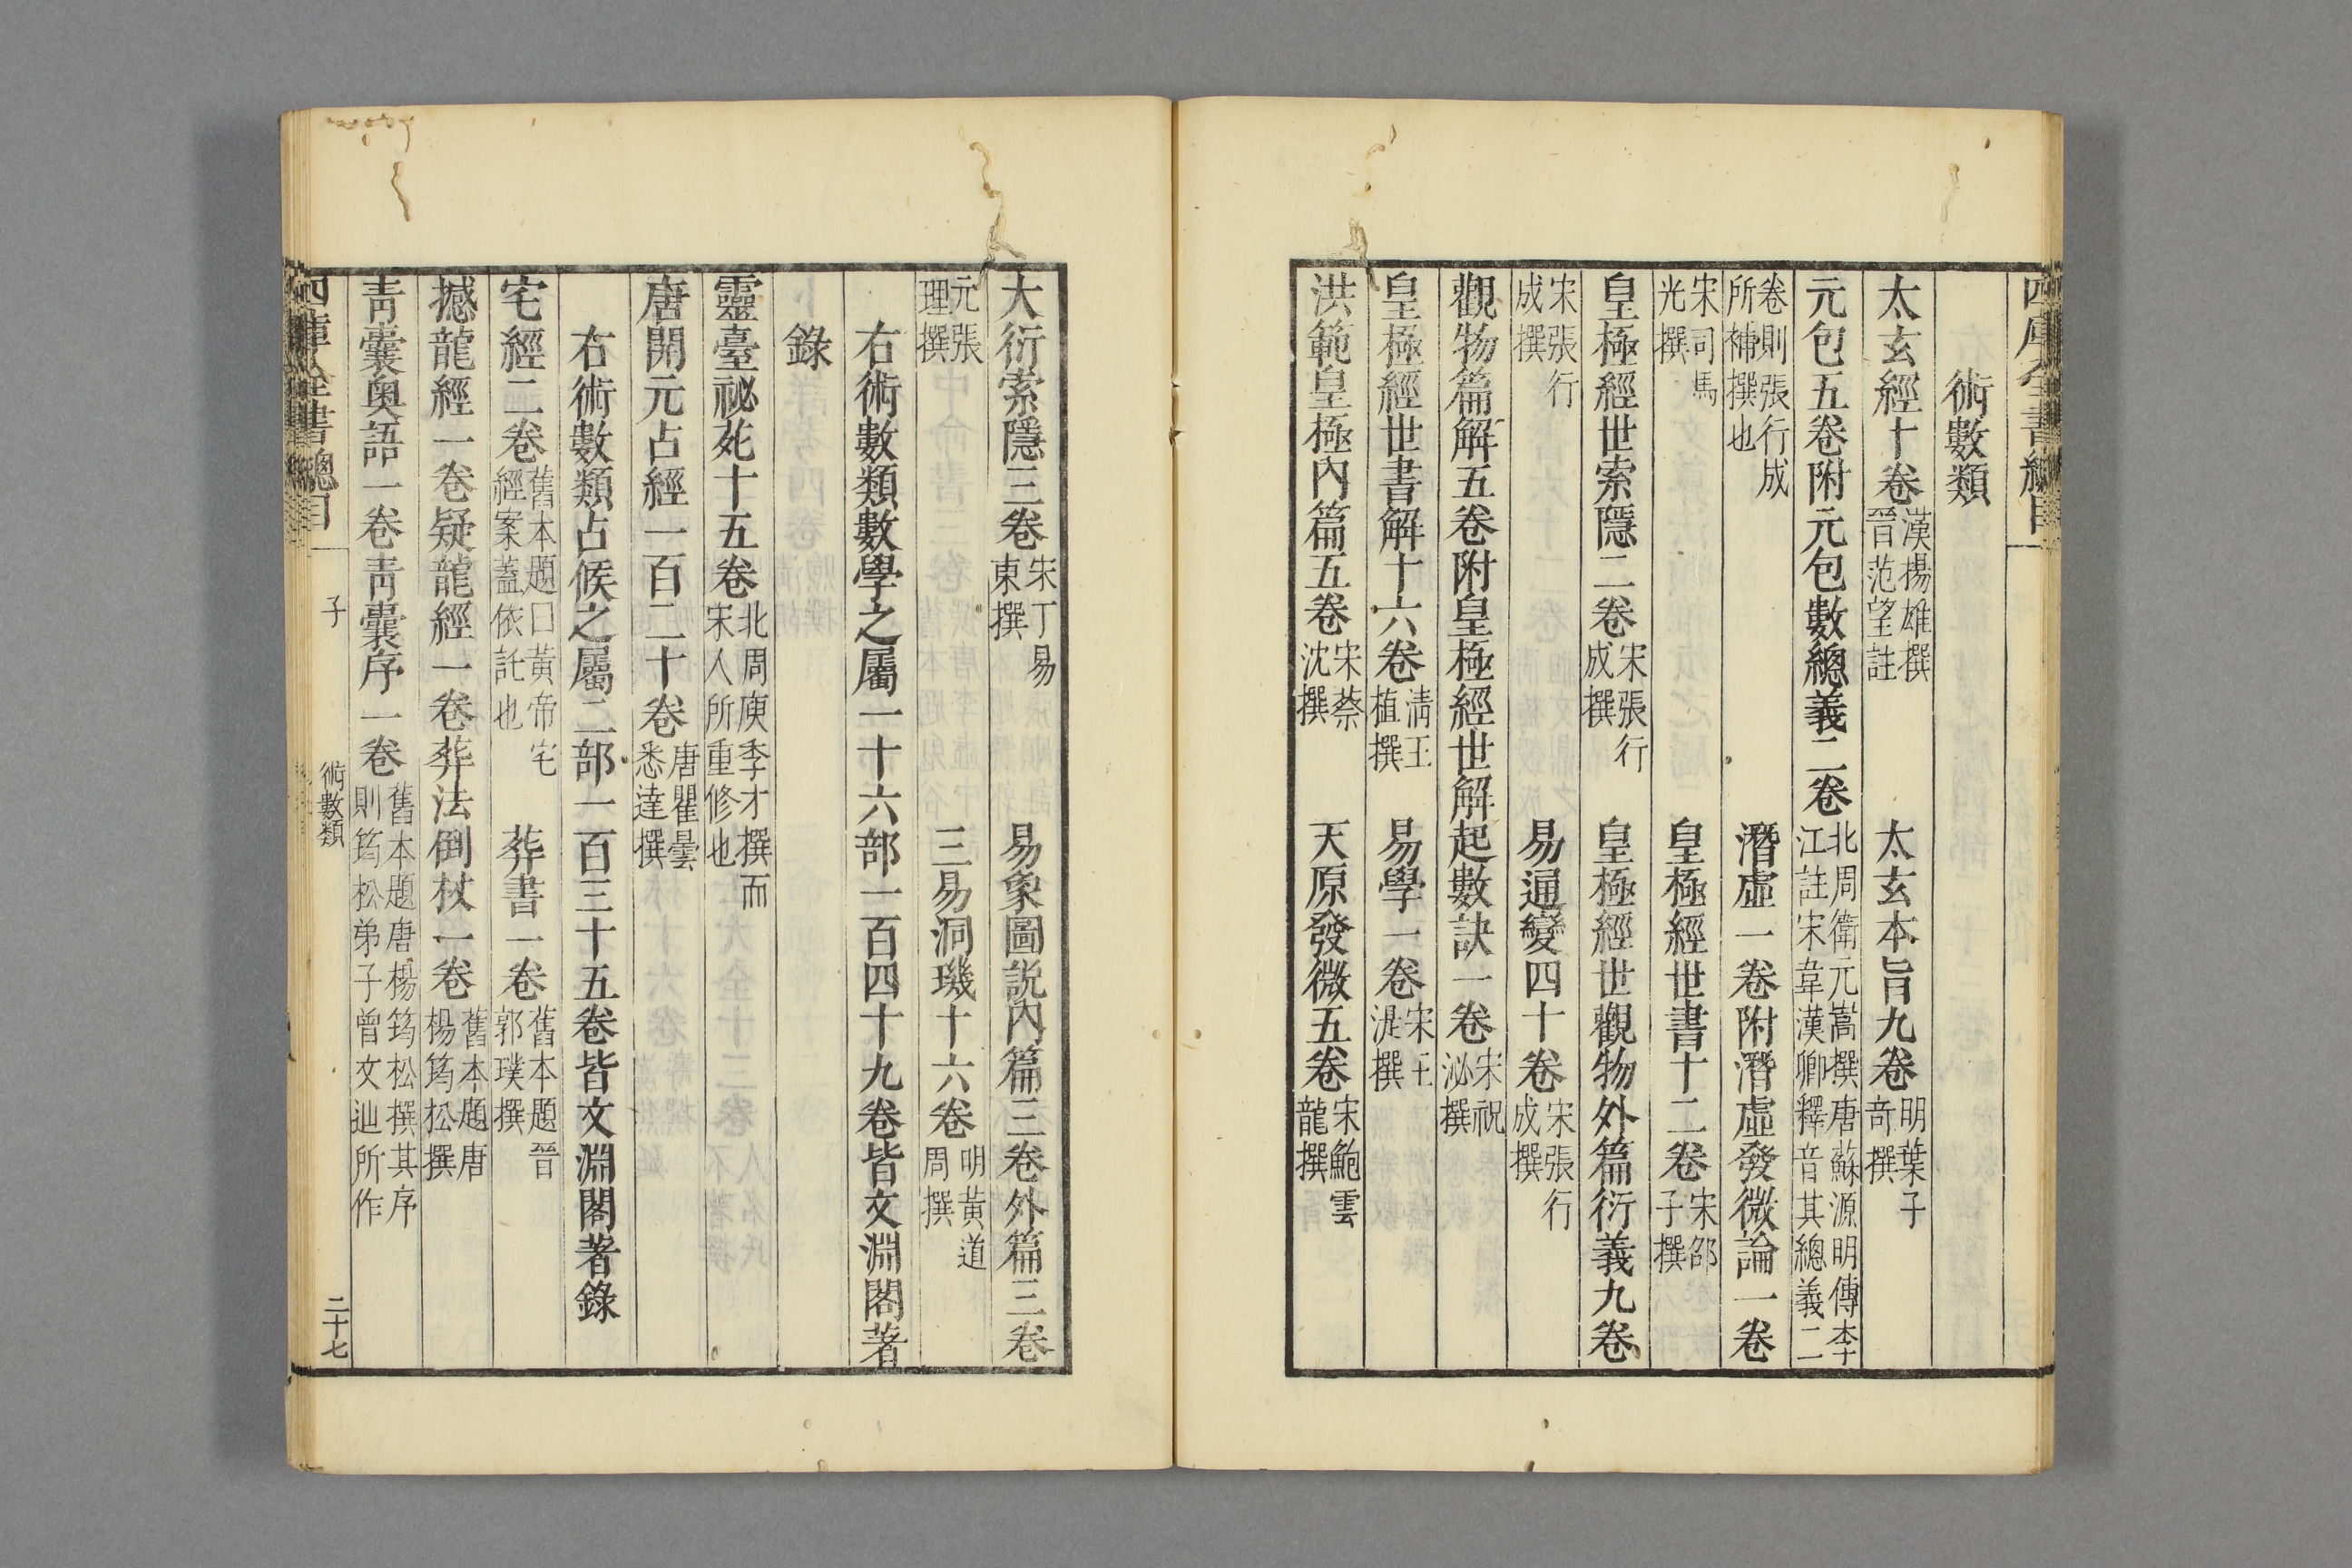 四庫全書總目
術數類
太玄經十卷漢楊雄撰晉范望註 太玄本旨九卷明葉子奇撰
元包五卷附元包數總義二卷北周衛元嵩撰唐蘇源明傳李江註宋韋漢卿釋音其總義二
卷則張行成所補撰也 潛虛一卷附潛虛發微論一卷
宋司馬光撰 皇極經世書十二卷宋邵子撰
皇極經世索隱二卷宋張行成撰 皇極經世觀物外篇衍義九卷
宋張行成撰 易通變四十卷宋張行成撰
觀物篇解五卷附皇極經世解起數訣一卷宋祝泌撰
皇極經世書解十六卷清王植撰 易學一卷宋王湜撰
洪範皇極內篇五卷宋蔡沈撰 天原發微五卷宋鮑雲龍撰
大衍索隱三卷宋丁易東撰 易象圖說內篇三卷外篇三卷
元張理撰 三易洞璣十六卷明黃道周撰
右術數類數學之屬一十六部一百四十九卷皆文淵閣著
錄
靈臺祕苑十五卷北周庾季才撰而宋人所重修也
唐開元占經一百二十卷唐瞿曇悉達撰
右術數類占候之屬二部一百三十五卷皆文淵閣著錄
宅經二卷舊本題曰黃帝宅經案蓋依託也 葬書一卷舊本題晉郭璞撰
撼龍經一卷疑龍經一卷葬法倒杖一卷舊本題唐楊筠松撰
靑囊奧語一卷靑囊序一卷舊本題唐楊筠松撰其序則筠松弟子曾文辿所作
四庫全書總目 子 術數類 二十七